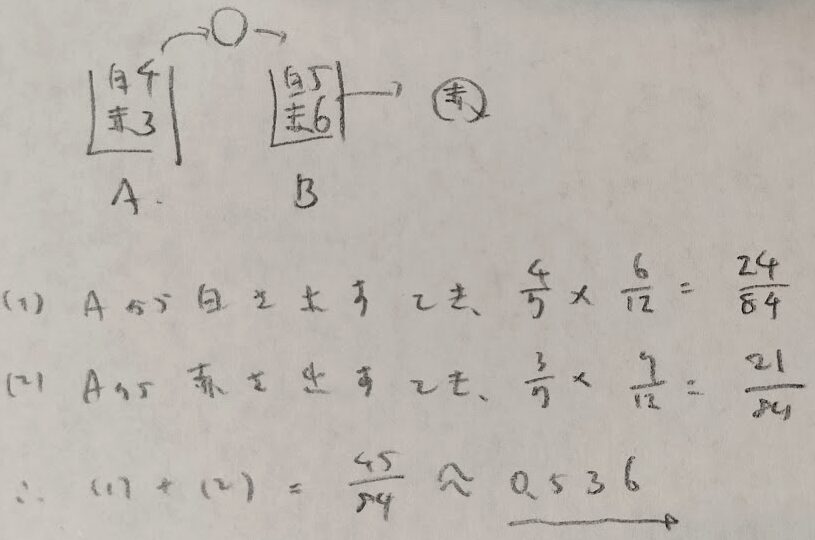 白4 白5
赤3 赤6 赤
A. B
(1) Aから白を出すとき、 4/7 × 6/12 = 24/84
(2) Aから赤を出すとき、 3/7 × 7/12 = 21/84
∴ (1) + (2) = 45/84 ≈ 0.536